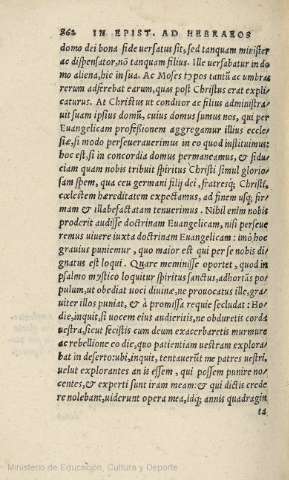 862 IN EPIST. AD HEBRAEOS
domo dei bona fide uersatus sit, sed tanquam minister
ac dispensator, nõ tanquam filius. Ille uersabatur in do
mo aliena, hic in sua. Ac Moses typos tantũ ac umbras
rerum adferebat earum, quas post Christus erat expli
caturus. At Christus ut conditor ac filius administra
uit suam ipsius domũ, cuius domus sumus nos, qui per
Euangelicam professionem aggregamur illius eccle
siæ, si modo perseuerauerimus in eo quod instituimus:
hoc est, si in concordia domus permaneamus, & fidu
ciam quam nobis tribuit spiritus Christi simul glorio-
sam spem, qua ceu germani filij dei, fratresq; Christi,
cœlestem hæreditatem expectamus, ad finem usq; fir-
mam & illabefactatam tenuerimus. Nihil enim nobis
proderit audisse doctrinam Euangelicam, nisi perseue
remus uiuere iuxta doctrinam Euangelicam: imò hoc
grauius puniemur, quo maior est qui per se nobis di-
gnatus est loqui. Quare meminisse oportet, quod in
psalmo mystico loquitur spiritus sanctus, adhortãs po-
pulum, ut obediat uoci diuinæ, ne prouocatus ille, gra
uiter illos puniat, & à promissa requie secludat: Ho-
die, inquit, si uocem eius audieritis, ne obduretis corda
uestra, sicut fecistis cum deum exacerbaretis murmure
ac rebellione eo die, quo patientiam uestram explora-
bat in deserto: ubi, inquit, tentauerũt me patres uestri,
uelut explorantes an is essem, qui possem punire no-
centes, & experti sunt iram meam: & qui dictis crede
re nolebant, uiderunt opera mea, idq; annis quadragin
ta
Ministerio de Educación, Cultura y Deporte